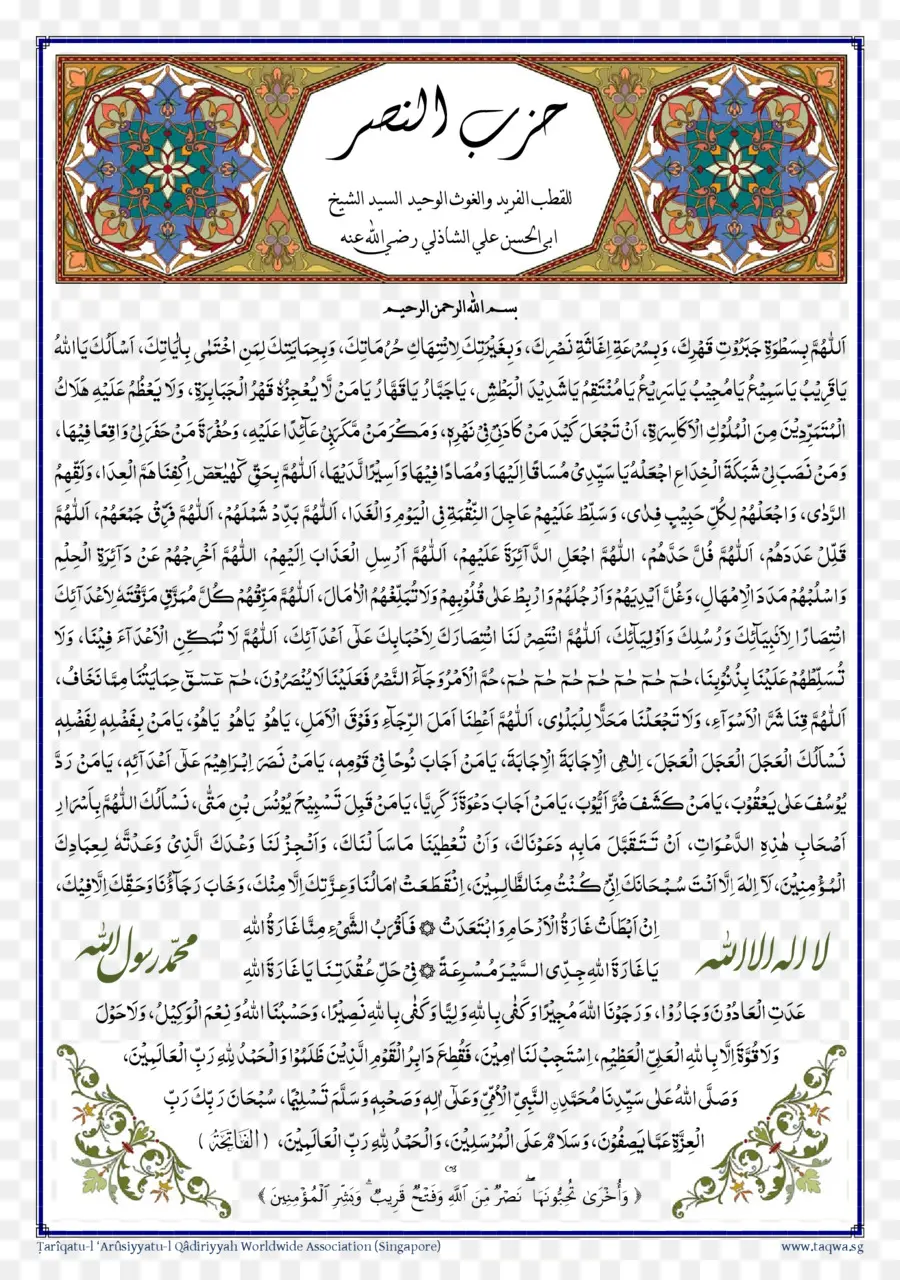 حزب النصر
للقطب الفريد والغوث الوحيد السيد الشيخ
ابي الحسن علي الشاذلي رضي الله عنه
بسم الله الرحمن الرحيم
اَللّٰهُمَّ بِسَطْوَةِ جَبَرُوْتِ قَهْرِكَ، وَبِسُرْعَةِ اِغَاثَةِ نَصْرِكَ، وَبِغَيْرَتِكَ لِانْتِهَاكِ حُرُمَاتِكَ، وَبِحِمَايَتِكَ لِمَنِ احْتَمٰى بِاٰيَاتِكَ، اَسْاَلُكَ يَا اَللهُ
يَاقَرِيْبُ يَاسَمِيْعُ يَامُجِيْبُ يَاسَرِيْعُ يَامُنْتَقِمُ يَاشَدِيْدَ الْبَطْشِ، يَاجَبَّارُ يَاقَهَّارُ يَامَنْ لَّا يُعْجِزُهُ قَهْرُ الْجَبَابِرَةِ، وَلَا يَعْظُمُ عَلَيْهِ هَلَاكُ
الْمُتَمَرِّدِيْنَ مِنَ الْمُلُوْكِ الْاَكَاسِرَةِ، اَنْ تَجْعَلَ كَيْدَ مَنْ كَادَنِيْ فِيْ نَحْرِهٖ، وَمَكْرَ مَنْ مَّكَرَ بِيْ عَآئِدًا عَلَيْهِ، وَحُفْرَةَ مَنْ حَفَرَ لِيْ وَاقِعًا فِيْهَا،
وَمَنْ نَصَبَ لِيْ شَبَكَةَ الْخِدَاعِ اجْعَلْهُ يَا سَيِّدِيْ مُسَاقًا اِلَيْهَا وَمُصَادًا فِيْهَا وَاَسِيْرًا لَّدَيْهَا، اَللّٰهُمَّ بِحَقِّ كٓهٰيٰعٓصٓ اِكْفِنَا هَمَّ الْعِدَا، وَلَقِّهِمُ
الرَّدٰى، وَاجْعَلْهُمْ لِكُلِّ حَبِيْبٍ فِدٰى، وَسَلِّطْ عَلَيْهِمْ عَاجِلَ النِّقْمَةِ فِى الْيَوْمِ وَالْغَدَا، اَللّٰهُمَّ بَدِّدْ شَمْلَهُمْ، اَللّٰهُمَّ فَرِّقْ جَمْعَهُمْ، اَللّٰهُمَّ
قَلِّلْ عَدَدَهُمْ، اَللّٰهُمَّ فُلَّ حَدَّهُمْ، اَللّٰهُمَّ اجْعَلِ الدَّآئِرَةَ عَلَيْهِمْ، اَللّٰهُمَّ اَرْسِلِ الْعَذَابَ اِلَيْهِمْ، اَللّٰهُمَّ اَخْرِجْهُمْ عَنْ دَآئِرَةِ الْحِلْمِ
وَاسْلُبْهُمْ مَدَدَ الْاِمْهَالِ، وَغُلَّ اَيْدِيَهُمْ وَاَرْجُلَهُمْ وَارْبِطْ عَلٰى قُلُوْبِهِمْ وَلَا تُبَلِّغْهُمُ الْاٰمَالَ، اَللّٰهُمَّ مَزِّقْهُمْ كُلَّ مُمَزَّقٍ مَزَّقْتَهٗ لِاَعْدَآئِكَ
انْتِصَارًا لِاَنْبِيَآئِكَ وَرُسُلِكَ وَاَوْلِيَآئِكَ، اَللّٰهُمَّ انْتَصِرْ لَنَا انْتِصَارَكَ لِاَحْبَابِكَ عَلٰى اَعْدَآئِكَ، اَللّٰهُمَّ لَا تُمَكِّنِ الْاَعْدَآءَ فِيْنَا، وَلَا
تُسَلِّطْهُمْ عَلَيْنَا بِذُنُوْبِنَا، حٰمٓ حٰمٓ حٰمٓ حٰمٓ حٰمٓ حٰمٓ حٰمٓ، حُمَّ الْاَمْرُ وَجَآءَ النَّصْرُ فَعَلَيْنَا لَا يُنْصَرُوْنَ، حٰمٓ عٓسٓقٓ حِمَايَتُنَا مِمَّا نَخَافُ،
اَللّٰهُمَّ قِنَا شَرَّ الْاَسْوَآءِ، وَلَا تَجْعَلْنَا مَحَلًّا لِلْبَلْوٰى، اَللّٰهُمَّ اَعْطِنَا اَمَلَ الرَّجَآءِ وَفَوْقَ الْاَمَلِ، يَاهُوَ يَاهُوَ يَاهُوَ، يَامَنْ بِفَضْلِهٖ لِفَضْلِهٖ
نَسْاَلُكَ الْعَجَلَ الْعَجَلَ الْعَجَلَ، اِلٰهِى الْاِجَابَةَ الْاِجَابَةَ، يَامَنْ اَجَابَ نُوْحًا فِيْ قَوْمِهٖ، يَامَنْ نَصَرَ اِبْرَاهِيْمَ عَلٰى اَعْدَآئِهٖ، يَامَنْ رَدَّ
يُوْسُفَ عَلٰى يَعْقُوْبَ، يَامَنْ كَشَفَ ضُرَّ اَيُّوْبَ، يَامَنْ اَجَابَ دَعْوَةَ زَكَرِيَّا، يَامَنْ قَبِلَ تَسْبِيْحَ يُوْنُسَ بْنِ مَتّٰى، نَسْاَلُكَ اللّٰهُمَّ بِاَسْرَارِ
اَصْحَابِ هٰذِهِ الدَّعْوَاتِ، اَنْ تَتَقَبَّلَ مَا بِهٖ دَعَوْنَاكَ، وَاَنْ تُعْطِيَنَا مَا سَاَلْنَاكَ، وَاَنْجِزْ لَنَا وَعْدَكَ الَّذِيْ وَعَدْتَّهٗ لِعِبَادِكَ
الْمُؤْمِنِيْنَ، لَآ اِلٰهَ اِلَّا اَنْتَ سُبْحَانَكَ اِنِّيْ كُنْتُ مِنَ الظَّالِمِيْنَ، اِنْقَطَعَتْ اٰمَالُنَا وَعِزَّتِكَ اِلَّا مِنْكَ، وَخَابَ رَجَآؤُنَا وَحَقِّكَ اِلَّا فِيْكَ،
اِنْ اَبْطَأَتْ غَارَةُ الْاَرْحَامِ وَابْتَعَدَتْ ۞ فَاَقْرَبُ الشَّيْءِ مِنَّا غَارَةُ اللهِ
يَا غَارَةَ اللهِ جِدِّى السَّيْرَ مُسْرِعَةً ۞ فِيْ حَلِّ عُقْدَتِنَا يَا غَارَةَ اللهِ
لا اله الا الله
محمّد رسول الله
عَدَتِ الْعَادُوْنَ وَجَارُوْا، وَرَجَوْنَا اللهَ مُجِيْرًا وَكَفٰى بِاللهِ وَلِيًّا وَكَفٰى بِاللهِ نَصِيْرًا، وَحَسْبُنَا اللهُ وَنِعْمَ الْوَكِيْلُ، وَلَا حَوْلَ
وَلَا قُوَّةَ اِلَّا بِاللهِ الْعَلِيِّ الْعَظِيْمِ، اِسْتَجِبْ لَنَا اٰمِيْنَ، فَقُطِعَ دَابِرُ الْقَوْمِ الَّذِيْنَ ظَلَمُوْا وَالْحَمْدُ لِلهِ رَبِّ الْعَالَمِيْنَ،
وَصَلَّى اللهُ عَلٰى سَيِّدِنَا مُحَمَّدِنِ النَّبِيِّ الْاُمِّيِّ وَعَلٰى اٰلِهٖ وَصَحْبِهٖ وَسَلَّمَ تَسْلِيْمًا، سُبْحَانَ رَبِّكَ رَبِّ
الْعِزَّةِ عَمَّا يَصِفُوْنَ، وَسَلَامٌ عَلَى الْمُرْسَلِيْنَ، وَالْحَمْدُ لِلهِ رَبِّ الْعَالَمِيْنَ، (الفَاتِحَةُ)
﴿ وَأُخْرَىٰ تُحِبُّونَهَا ۖ نَصْرٌ مِّنَ اللَّهِ وَفَتْحٌ قَرِيبٌ ۗ وَبَشِّرِ الْمُؤْمِنِينَ ﴾
Ṭarîqatu-l ‘Arûsiyyatu-l Qâdiriyyah Worldwide Association (Singapore)
www.taqwa.sg